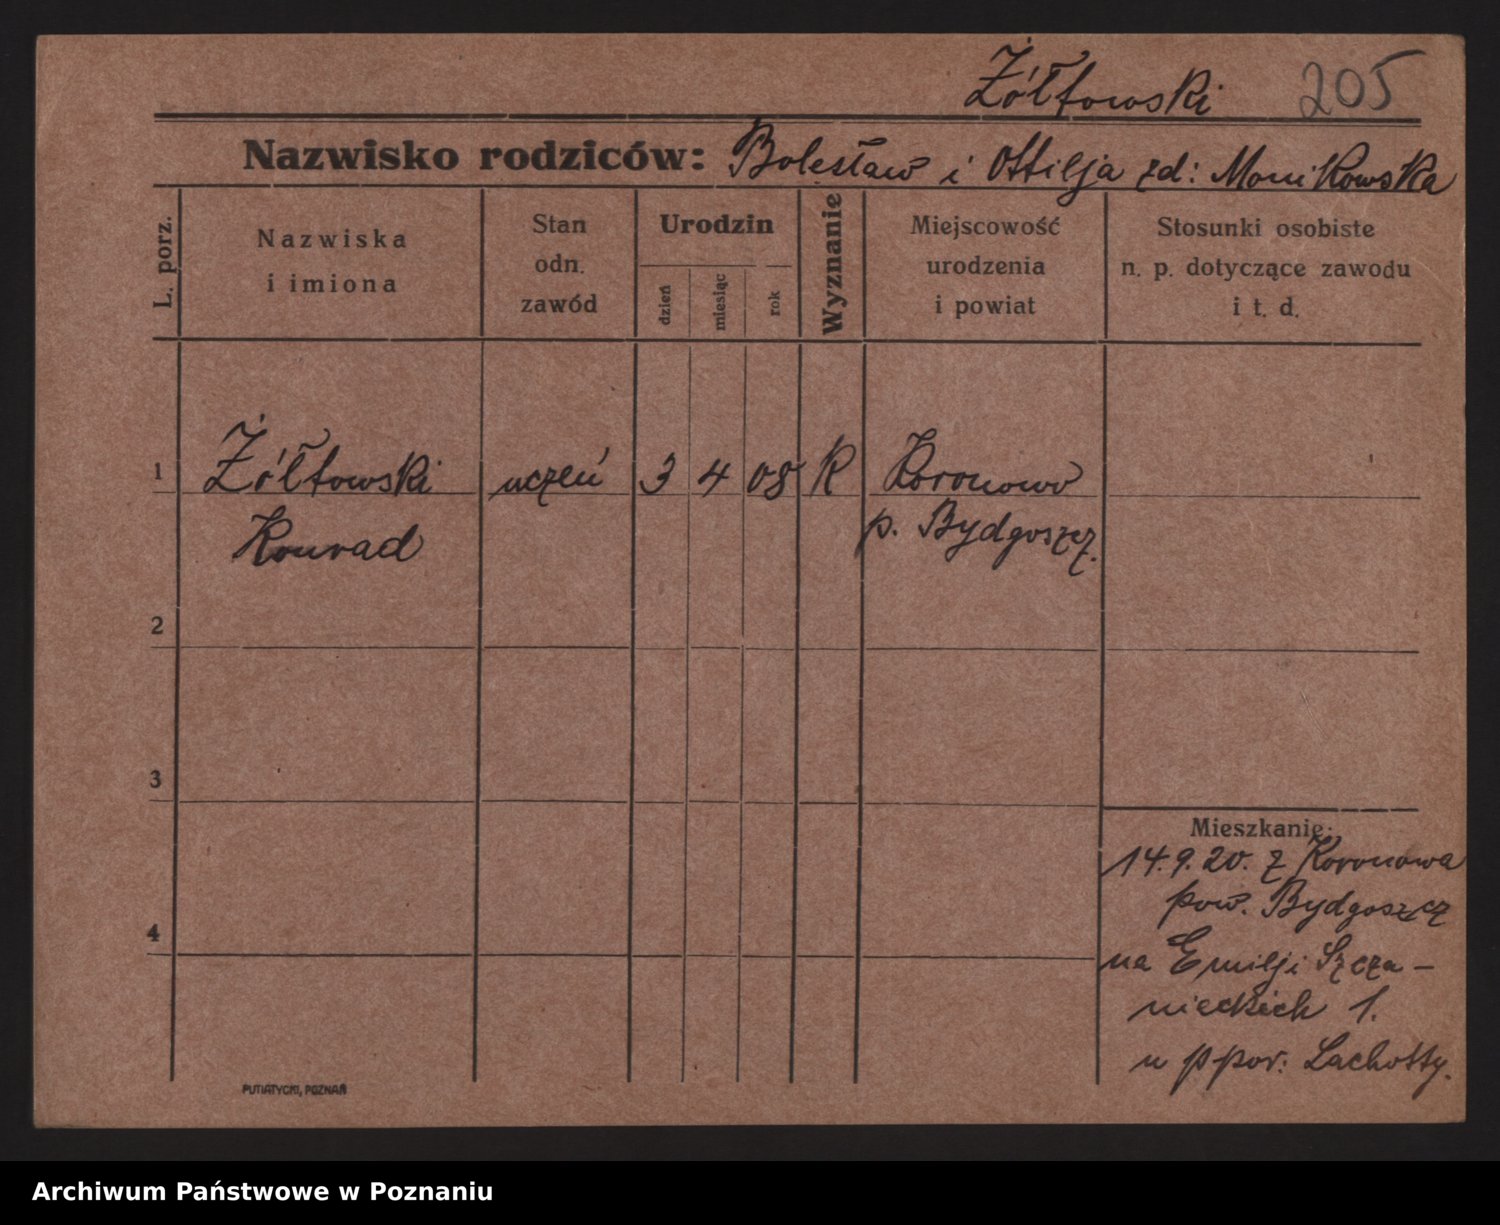 Żółtowski 205
Nazwisko rodziców: Bolesław i Ottilja zd: Monikowska
L. porz.
Nazwiska
i imiona
Stan
odn.
zawód
Urodzin
dzień
miesiąc
rok
Wyznanie
Miejscowość
urodzenia
i powiat
Stosunki osobiste
n. p. dotyczące zawodu
i t. d.
1 Żółtowski uczeń 3 4 08 R Koronowo
Konrad p. Bydgoszcz.
2
3
4
Mieszkanie:
14.9.20. z Koronowa
pow. Bydgoszcz
na Emilji Szcza-
nieckich 1.
u ppor: Lachotty.
PUTIATYCKI, POZNAŃ
Archiwum Państwowe w Poznaniu